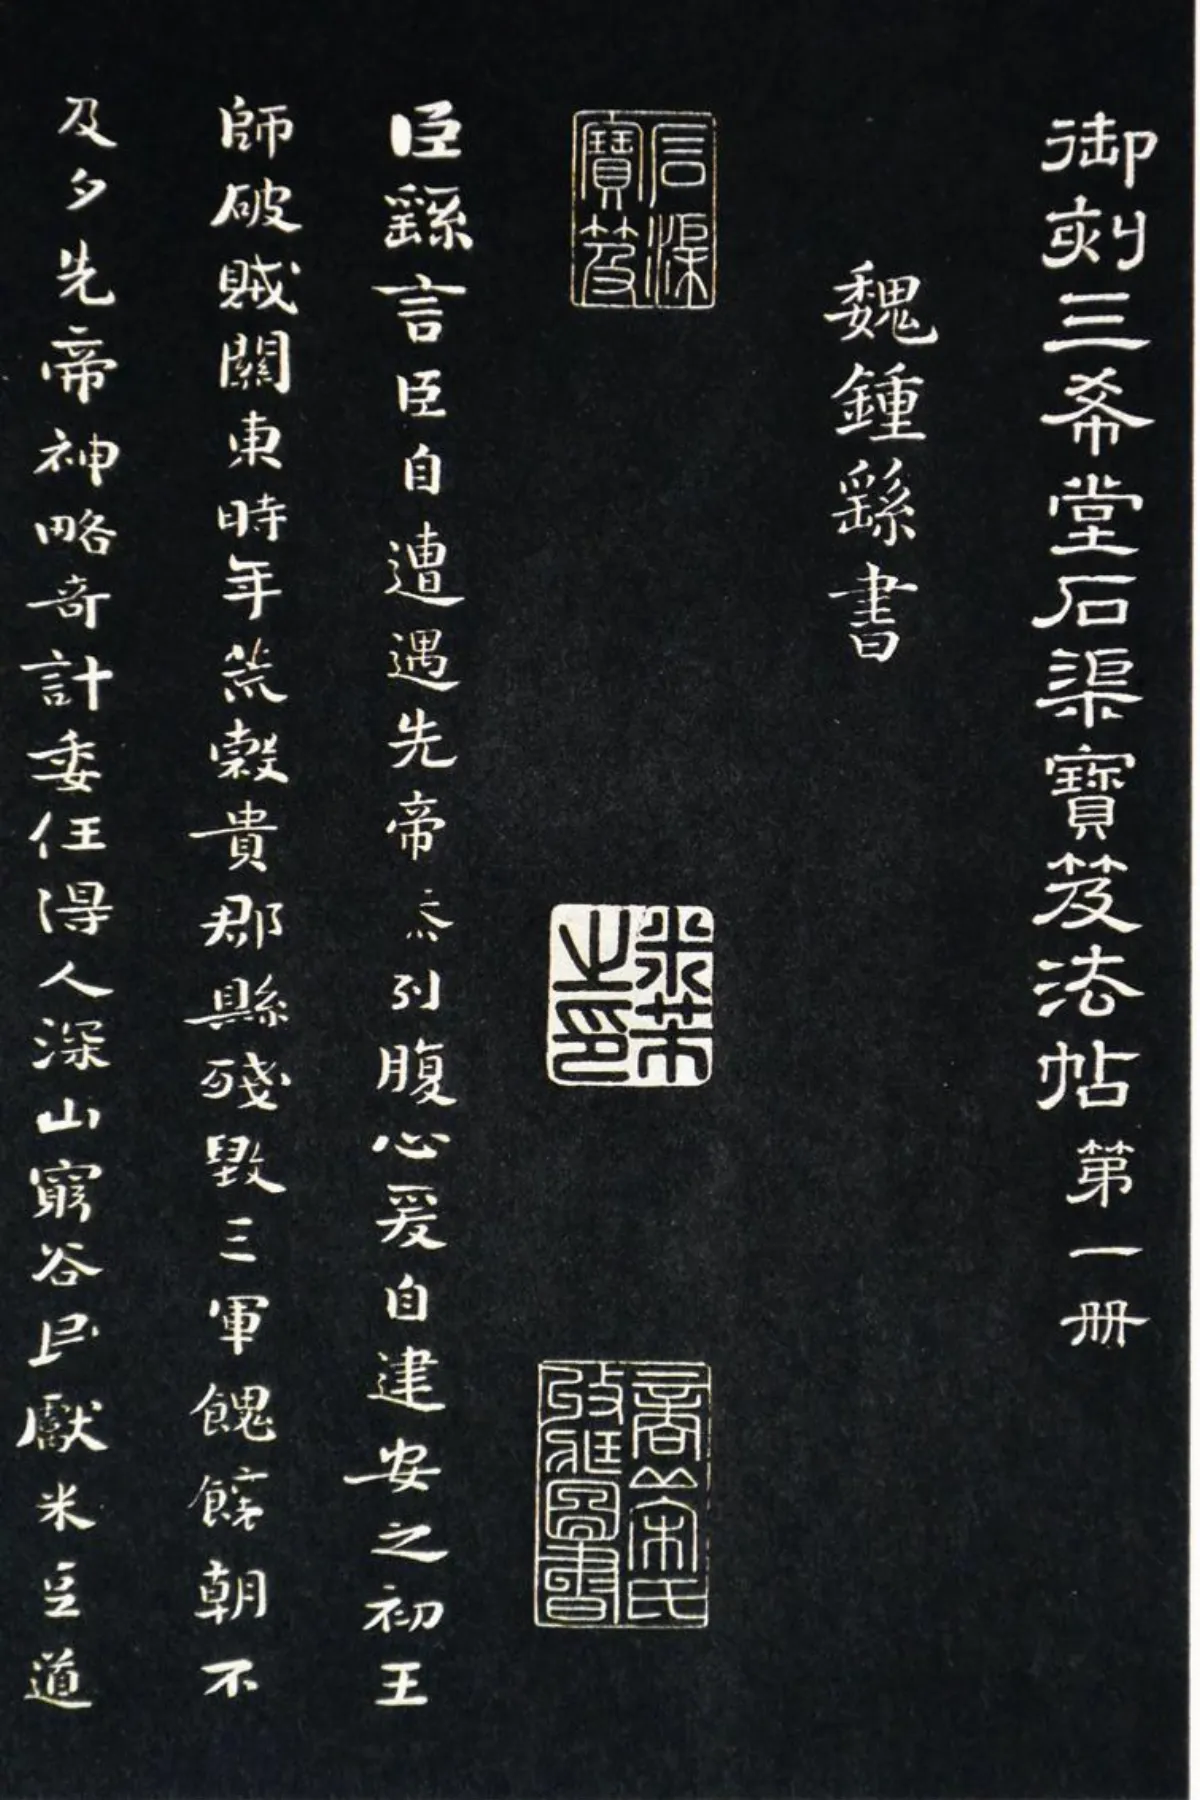 御刻三希堂石渠寶笈法帖第一册
魏鍾繇書
石渠寶笈
米芾之印
商丘宋氏收藏圖書
臣繇言臣自遭遇先帝忝列腹心爰自建安之初王
師破賊關東時年荒穀貴郡縣殘毀三軍餽饟朝不
及夕先帝神略奇計委任得人深山窮谷民獻米豆道